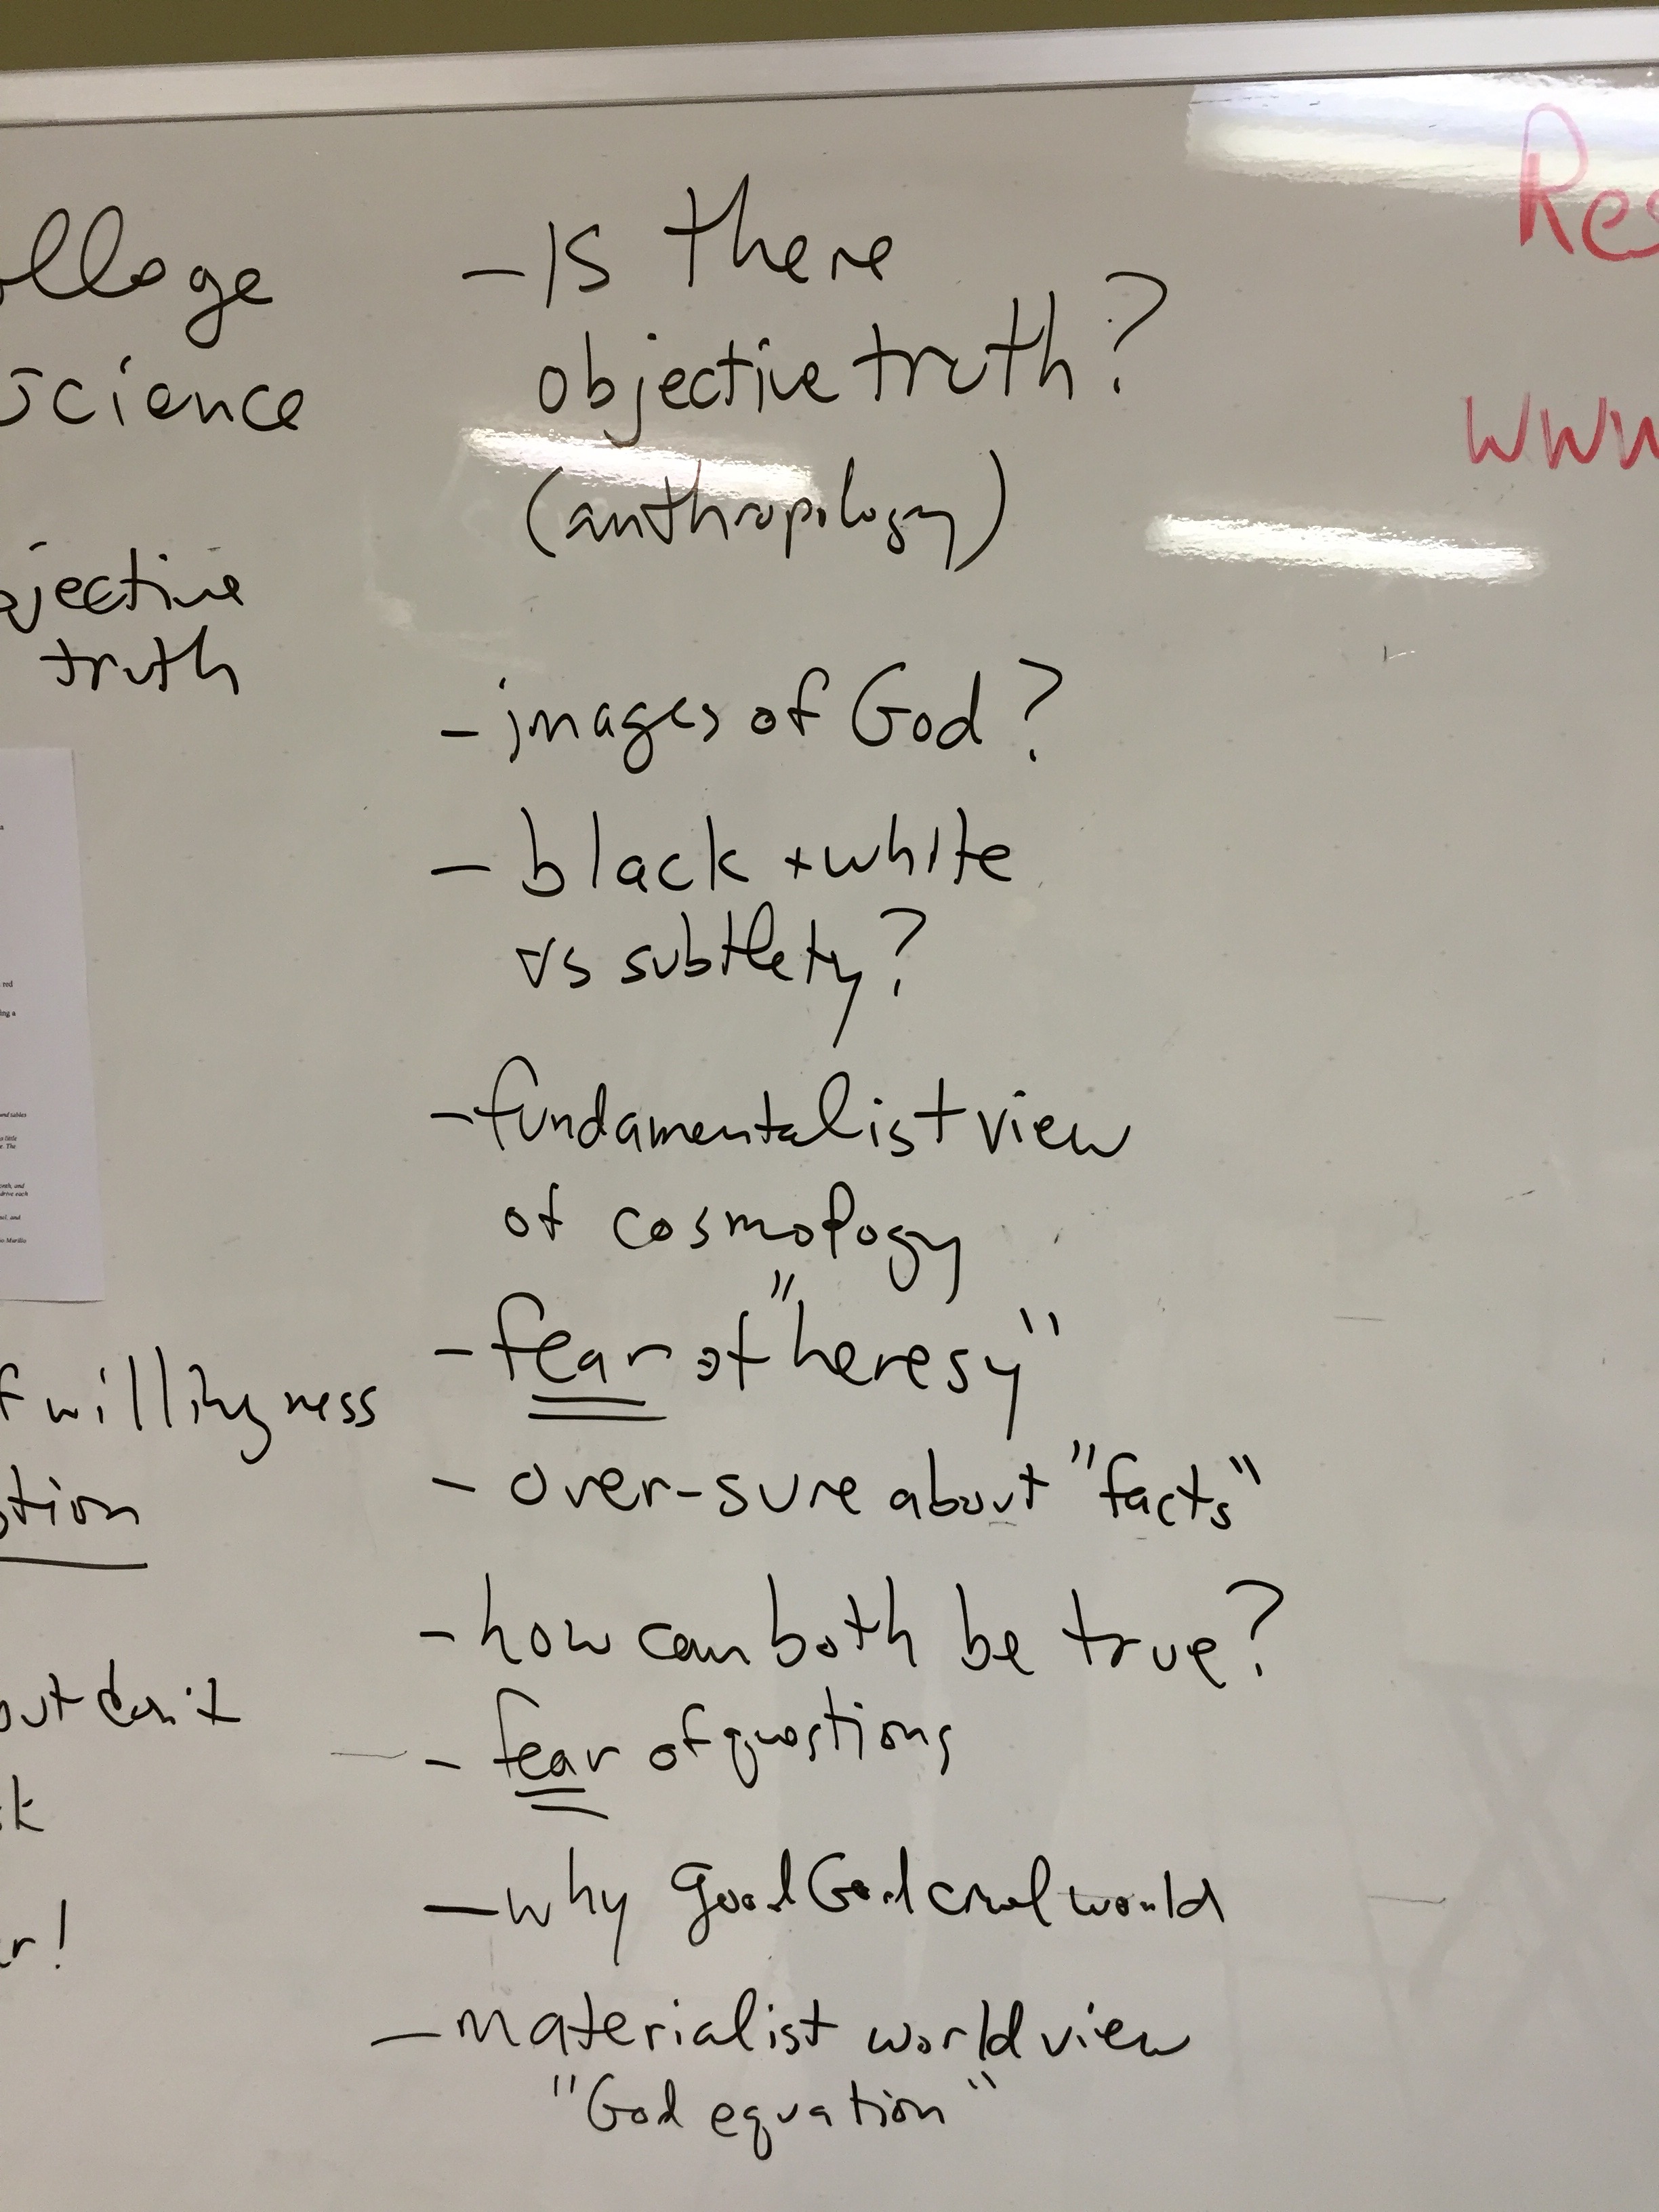 ollege
science
ojective
truth
a
red
ing a
and tables
s little
e. The
onth, and
drive each
el, and
o Murillo
f willingness
otion
out don't
k
er!
- Is there
objective truth?
(anthropology)
- images of God?
- black + white
vs subtlety?
- fundamentalist view
of cosmology
- fear of "heresy"
- over-sure about "facts"
- how can both be true?
- fear of questions
- why good God cruel world
- materialist world view
"God equation"
Res
www